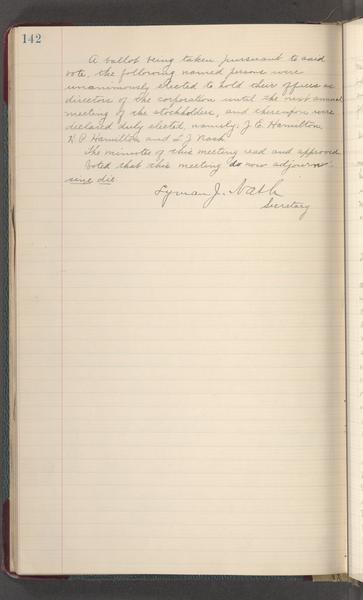 142
A ballot being taken pursuant to said
vote, the following named persons were
unanimously elected to hold their offices as
directors of the corporation until the next annual
meeting of the stockholders, and thereupon were
declared duly elected, namely, J. E. Hamilton,
H. P. Hamilton and L. J. Nash.
The minutes of this meeting read and approved.
Voted that this meeting do now adjourn
sine die
Lyman J. Nash
Secretary